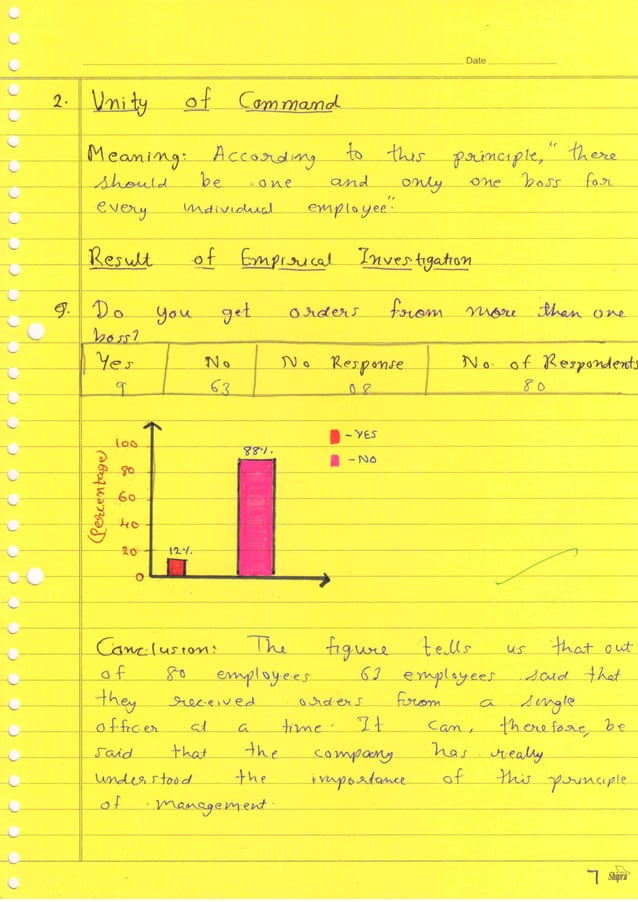 Date
2. Unity of Command
Meaning: According to this principle, "there
should be one and only one boss for
every individual employee".
Result of Empirical Investigation
Q. Do you get orders from more than one
boss?
Yes No No Response No. of Respondents
9 63 08 80
100
80
60
40
20
0
(Percentage)
12%.
88%.
- YES
- NO
Conclusion: The figure tells us that out
of 80 employees 63 employees said that
they received orders from a single
officer at a time. It can, therefore, be
said that the company has really
understood the importance of this principle
of management.
7 Shipra